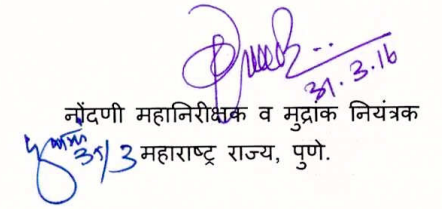 31.3.16
नोंदणी महानिरीक्षक व मुद्रांक नियंत्रक
31/3 महाराष्ट्र राज्य, पुणे.